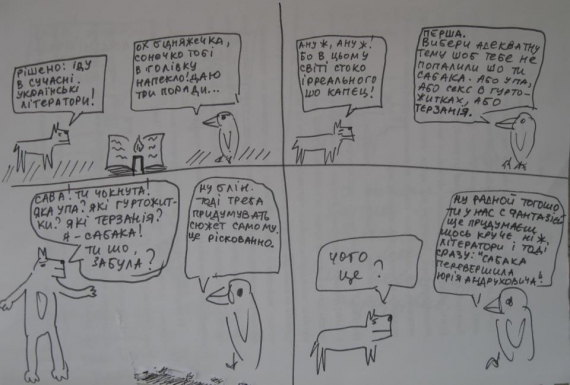 РІШЕНО: ІДУ
В СУЧАСНІ
УКРАЇНСЬКІ
ЛІТЕРАТОРИ!
ОХ БІДНЯЖЕЧКА,
СОНЕЧКО ТОБІ
В ГОЛІВКУ
НАПЕКЛО! ДАЮ
ТРИ ПОРАДИ...
АНУЖ, АНУЖ!
БО В ЦЬОМУ
СВІТІ СТОКО
ІРРЕАЛЬНОГО
ШО КАПЕЦ!
ПЕРША.
ВИБЕРИ АДЕКВАТНУ
ТЕМУ ШОБ ТЕБЕ НЕ
ПОПАЛИЛИ ШО ТИ
САБАКА. АБО УПА,
АБО СЕКС В ГУРТО-
ЖИТКАХ, АБО
ТЕРЗАНІЯ.
САВА! ТИ ЧОКНУТА!
ЯКА УПА? ЯКІ ГУРТОЖИТ-
КИ? ЯКІ ТЕРЗАНІЯ?
Я - САБАКА!
ТИ ШО,
ЗАБУЛА?
НУ БЛІН.
ТОДІ ТРЕБА
ПРИДУМУВАТЬ
СЮЖЕТ САМОМУ.
ЦЕ РІСКОВАННО.
ЧОГО
ЦЕ?
НУ
ТИ У НАС З ФАНТАЗІЄЙ
ЩЕ ПРИДУМАЕШ
ЩОСЬ КРУЧЕ НІЖ
ЛІТЕРАТОРИ І ТОДІ
СРАЗУ: "САБАКА
ПЕРЕВЕРШИЛА
ЮРІЯ АНДРУХОВИЧА!